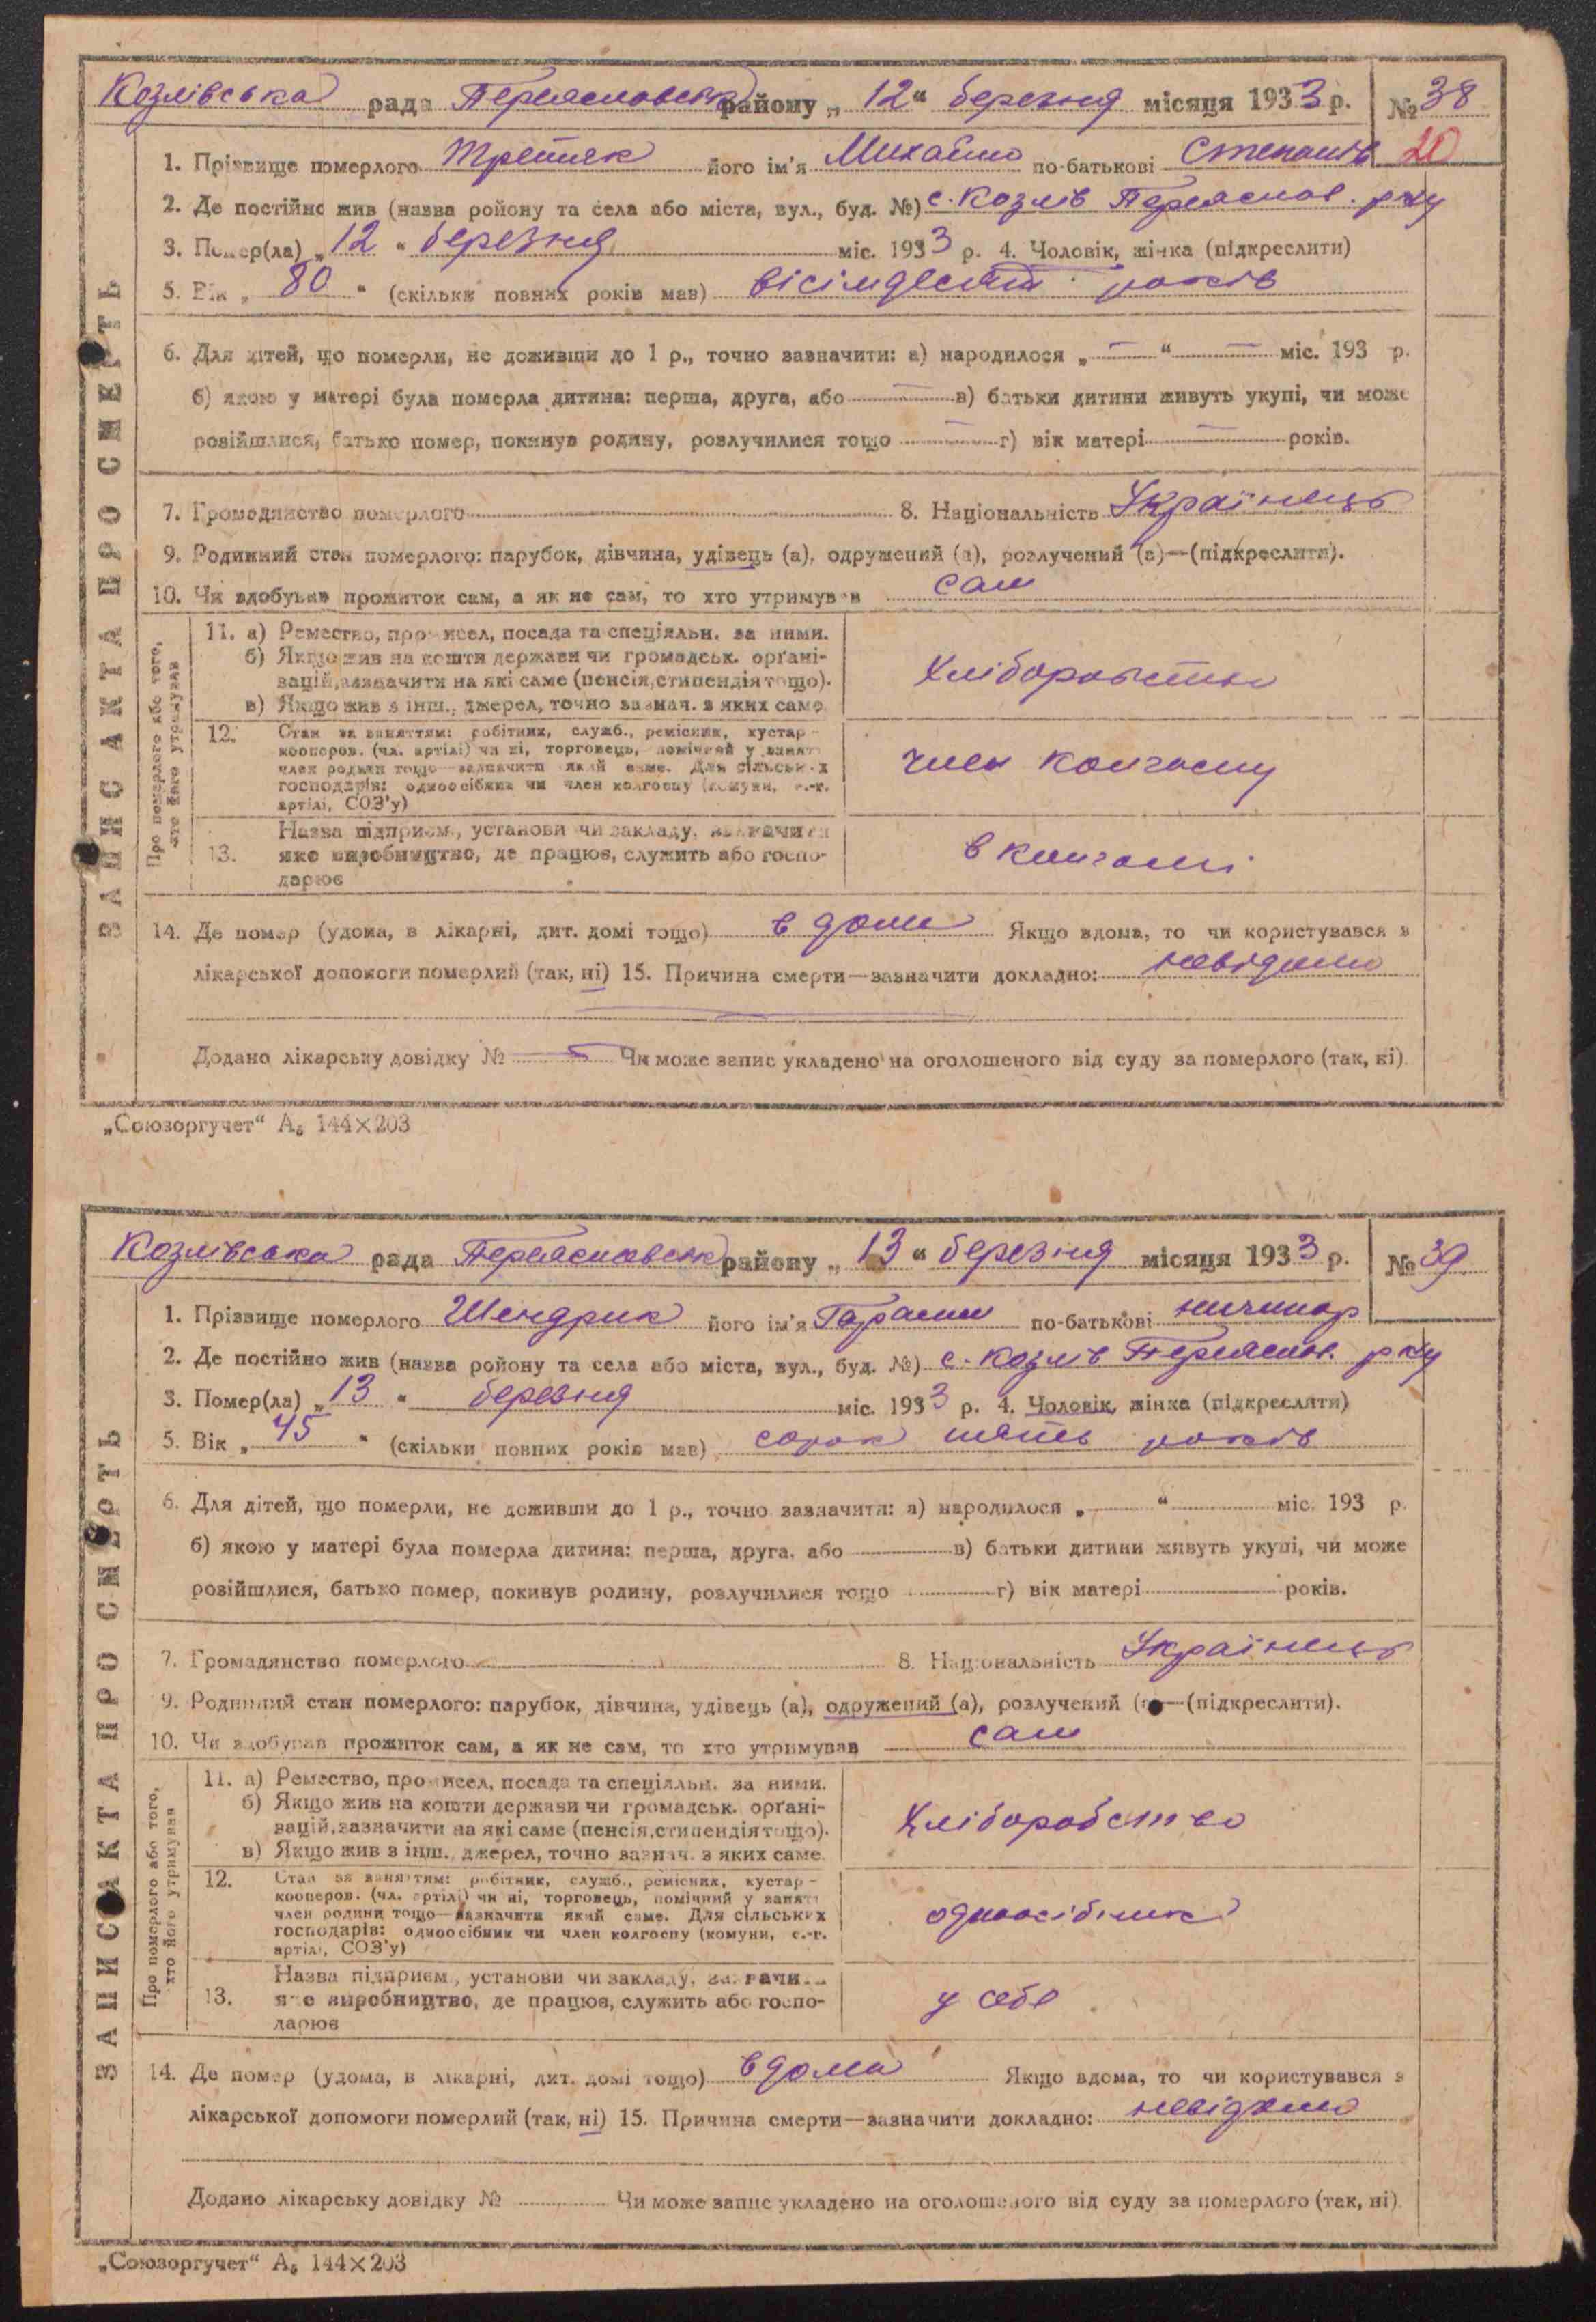 Козлівська рада Переяславськ району „ 12 “ березня місяця 1933 р. № 38
20
1. Прізвище померлого Третяк його ім'я Михайло по-батькові Степанів
2. Де постійно жив (назва ройону та села або міста, вул., буд. №) с. Козлів Переяслов. р-ну
3. Помер(ла) „ 12 “ березня міс. 1933 р. 4. Чоловік, жінка (підкреслити)
5. Вік „ 80 “ (скільки повних років мав) вісімдесят років
6. Для дітей, що померли, не доживши до 1 р., точно зазначити: а) народилося „ — “ — міс. 193 р.
б) якою у матері була померла дитина: перша, друга, або — в) батьки дитини живуть укупі, чи може
розійшлися, батько помер, покинув родину, розлучилися тощо — г) вік матері — років.
7. Громадянство померлого 8. Національність Українець
9. Родинний стан померлого: парубок, дівчина, удівець (а), одружений (а), розлучений (а)—(підкреслити).
10. Чи здобував прожиток сам, а як не сам, то хто утримував сам
ЗАПИС АКТА ПРО СМЕРТЬ
Про померлого або того,
хто його утримував
11. а) Ремество, промисел, посада та спеціяльн. за ними.
б) Якщо жив на кошти держави чи громадськ. орґані-
зацій, зазначити на які саме (пенсія, стипендія тощо).
в) Якщо жив з інш., джерел, точно зазнач. з яких саме.
Хліборобство
12. Стан за заняттям: робітник, служб., ремісник, кустар-
кооперов. (чл. артілі) чи ні, торговець, помічний у занят.
член родини тощо—зазначити який саме. Для сільських
господарів: одноосібник чи член колгоспу (комуни, с.-г.
артілі, СОЗ'у)
член колгоспу
13. Назва підприєм., установи чи закладу, зазначити
яке виробництво, де працює, служить або госпо-
дарює
в колгоспі
14. Де помер (удома, в лікарні, дит. домі тощо) в доми Якщо вдома, то чи користувався з
лікарської допомоги померлий (так, ні) 15. Причина смерти—зазначити докладно: невідомо
Додано лікарську довідку № — Чи може запис укладено на оголошеного від суду за померлого (так, ні)
„Союзоргучет“ А₅ 144×203
Козлівська рада Переяславськ району „ 13 “ березня місяця 1933 р. № 39
1. Прізвище померлого Шендрик його ім'я Гарасим по-батькові ничипор
2. Де постійно жив (назва ройону та села або міста, вул., буд. №) с. Козлів Переяслов. р-ну
3. Помер(ла) „ 13 “ березня міс. 1933 р. 4. Чоловік, жінка (підкреслити)
5. Вік „ 45 “ (скільки повних років мав) сорок пять років
6. Для дітей, що померли, не доживши до 1 р., точно зазначити: а) народилося „ “ міс. 193 р.
б) якою у матері була померла дитина: перша, друга, або в) батьки дитини живуть укупі, чи може
розійшлися, батько помер, покинув родину, розлучилися тощо г) вік матері років.
7. Громадянство померлого 8. Національність Українець
9. Родинний стан померлого: парубок, дівчина, удівець (а), одружений (а), розлучений (а)—(підкреслити).
10. Чи здобував прожиток сам, а як не сам, то хто утримував сам
ЗАПИС АКТА ПРО СМЕРТЬ
Про померлого або того,
хто його утримував
11. а) Ремество, промисел, посада та спеціяльн. за ними.
б) Якщо жив на кошти держави чи громадськ. орґані-
зацій, зазначити на які саме (пенсія, стипендія тощо).
в) Якщо жив з інш., джерел, точно зазнач. з яких саме.
Хліборобство
12. Стан за заняттям: робітник, служб., ремісник, кустар-
кооперов. (чл. артілі) чи ні, торговець, помічний у занят.
член родини тощо—зазначити який саме. Для сільських
господарів: одноосібник чи член колгоспу (комуни, с.-г.
артілі, СОЗ'у)
одноосібник
13. Назва підприєм., установи чи закладу, зазначити
яке виробництво, де працює, служить або госпо-
дарює
у себе
14. Де помер (удома, в лікарні, дит. домі тощо) вдома Якщо вдома, то чи користувався з
лікарської допомоги померлий (так, ні) 15. Причина смерти—зазначити докладно: невідомо
Додано лікарську довідку № Чи може запис укладено на оголошеного від суду за померлого (так, ні)
„Союзоргучет“ А₅ 144×203